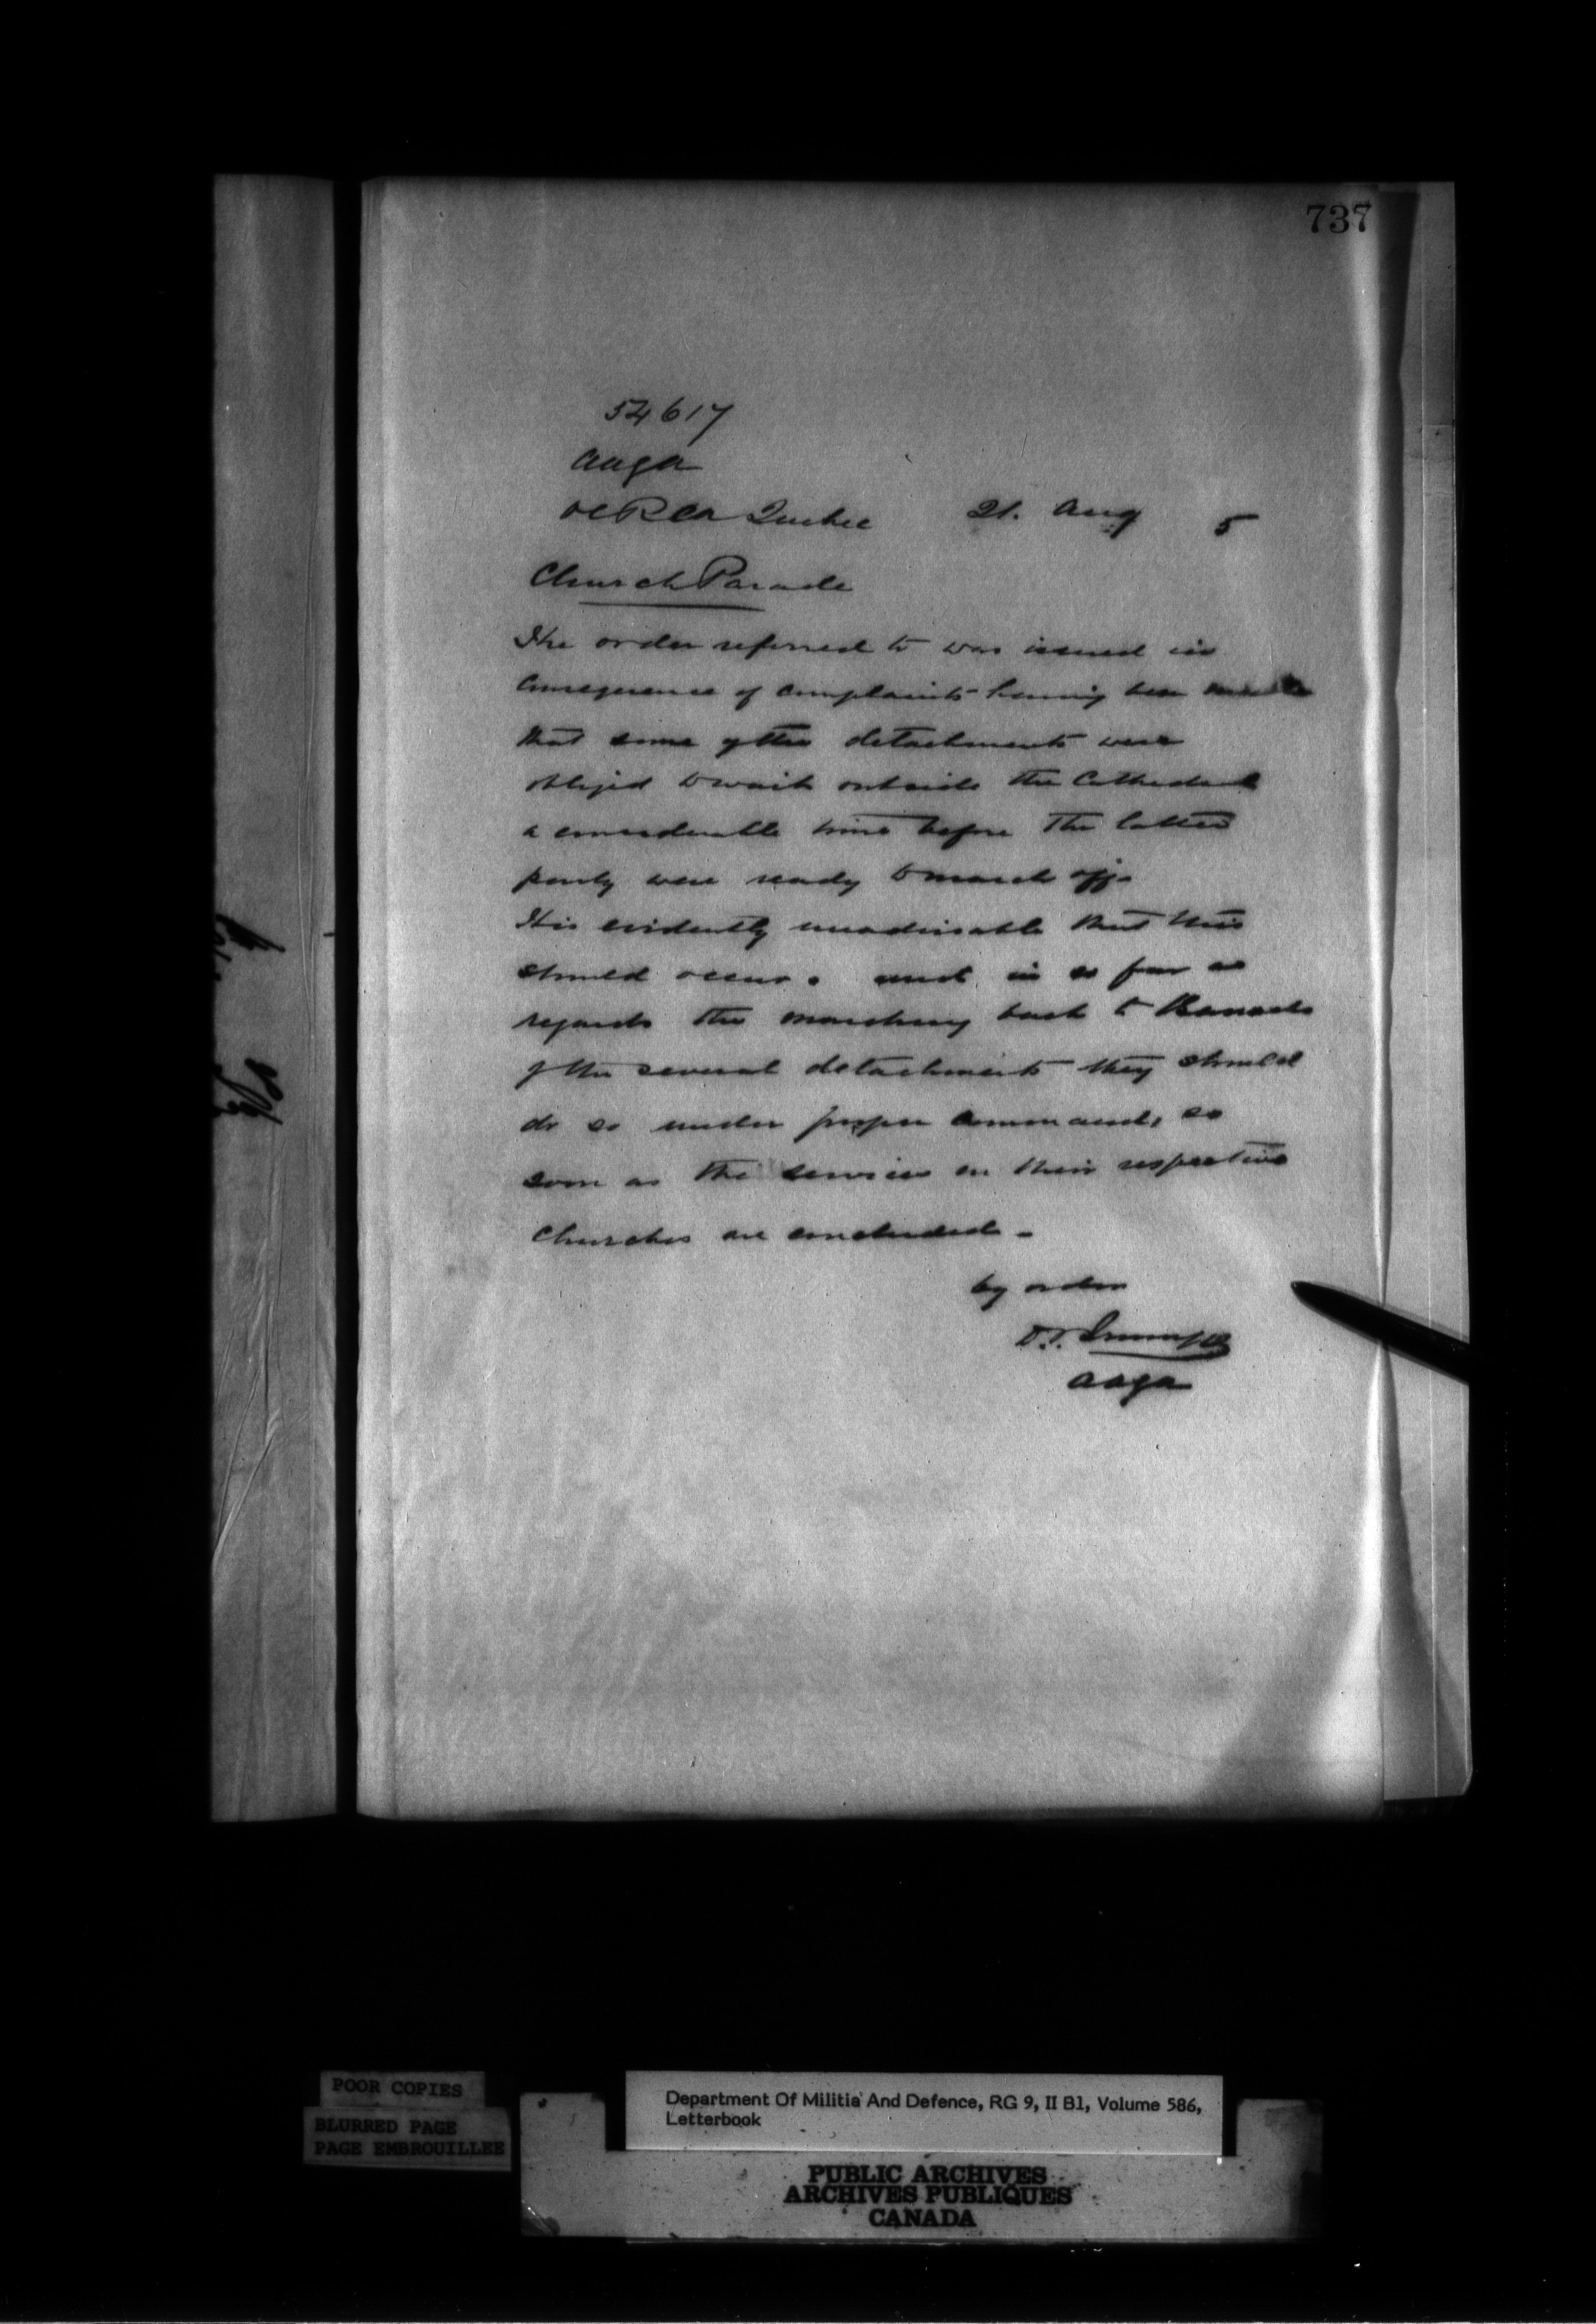 737
54617
aaga
OC RCA Quebec 21. Aug 5
Church Parade
The order referred to was issued in
consequence of complaints having been made
that some of the detachments were
obliged to wait outside the Cathedral
a considerable time before the latter
party were ready to march off.
It is evidently unadvisable that this
should occur. and in so far as
regards the marching back to Barracks
of the several detachments they should
do so under proper command, so
soon as the services in their respective
Churches are concluded -
by order
aaga
POOR COPIES
BLURRED PAGE
PAGE EMBROUILLEE
Department Of Militia And Defence, RG 9, II B1, Volume 586,
Letterbook
PUBLIC ARCHIVES
ARCHIVES PUBLIQUES
CANADA